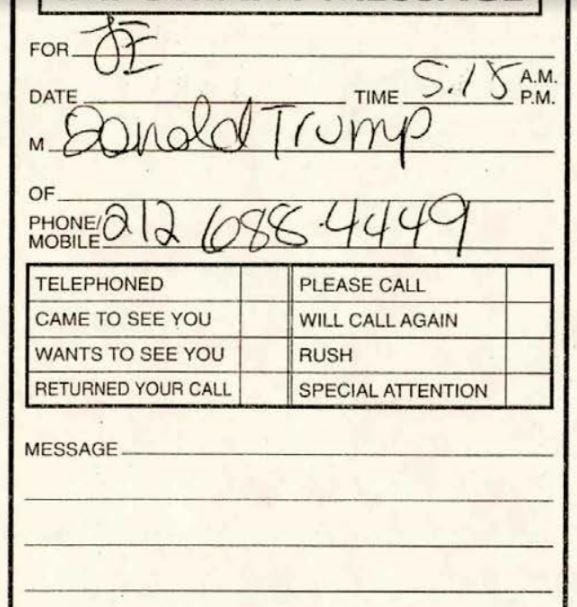 FOR JE
DATE TIME 5.15 A.M. P.M.
M Donald Trump
OF
PHONE/ MOBILE 212 688-4449
TELEPHONED PLEASE CALL
CAME TO SEE YOU WILL CALL AGAIN
WANTS TO SEE YOU RUSH
RETURNED YOUR CALL SPECIAL ATTENTION
MESSAGE